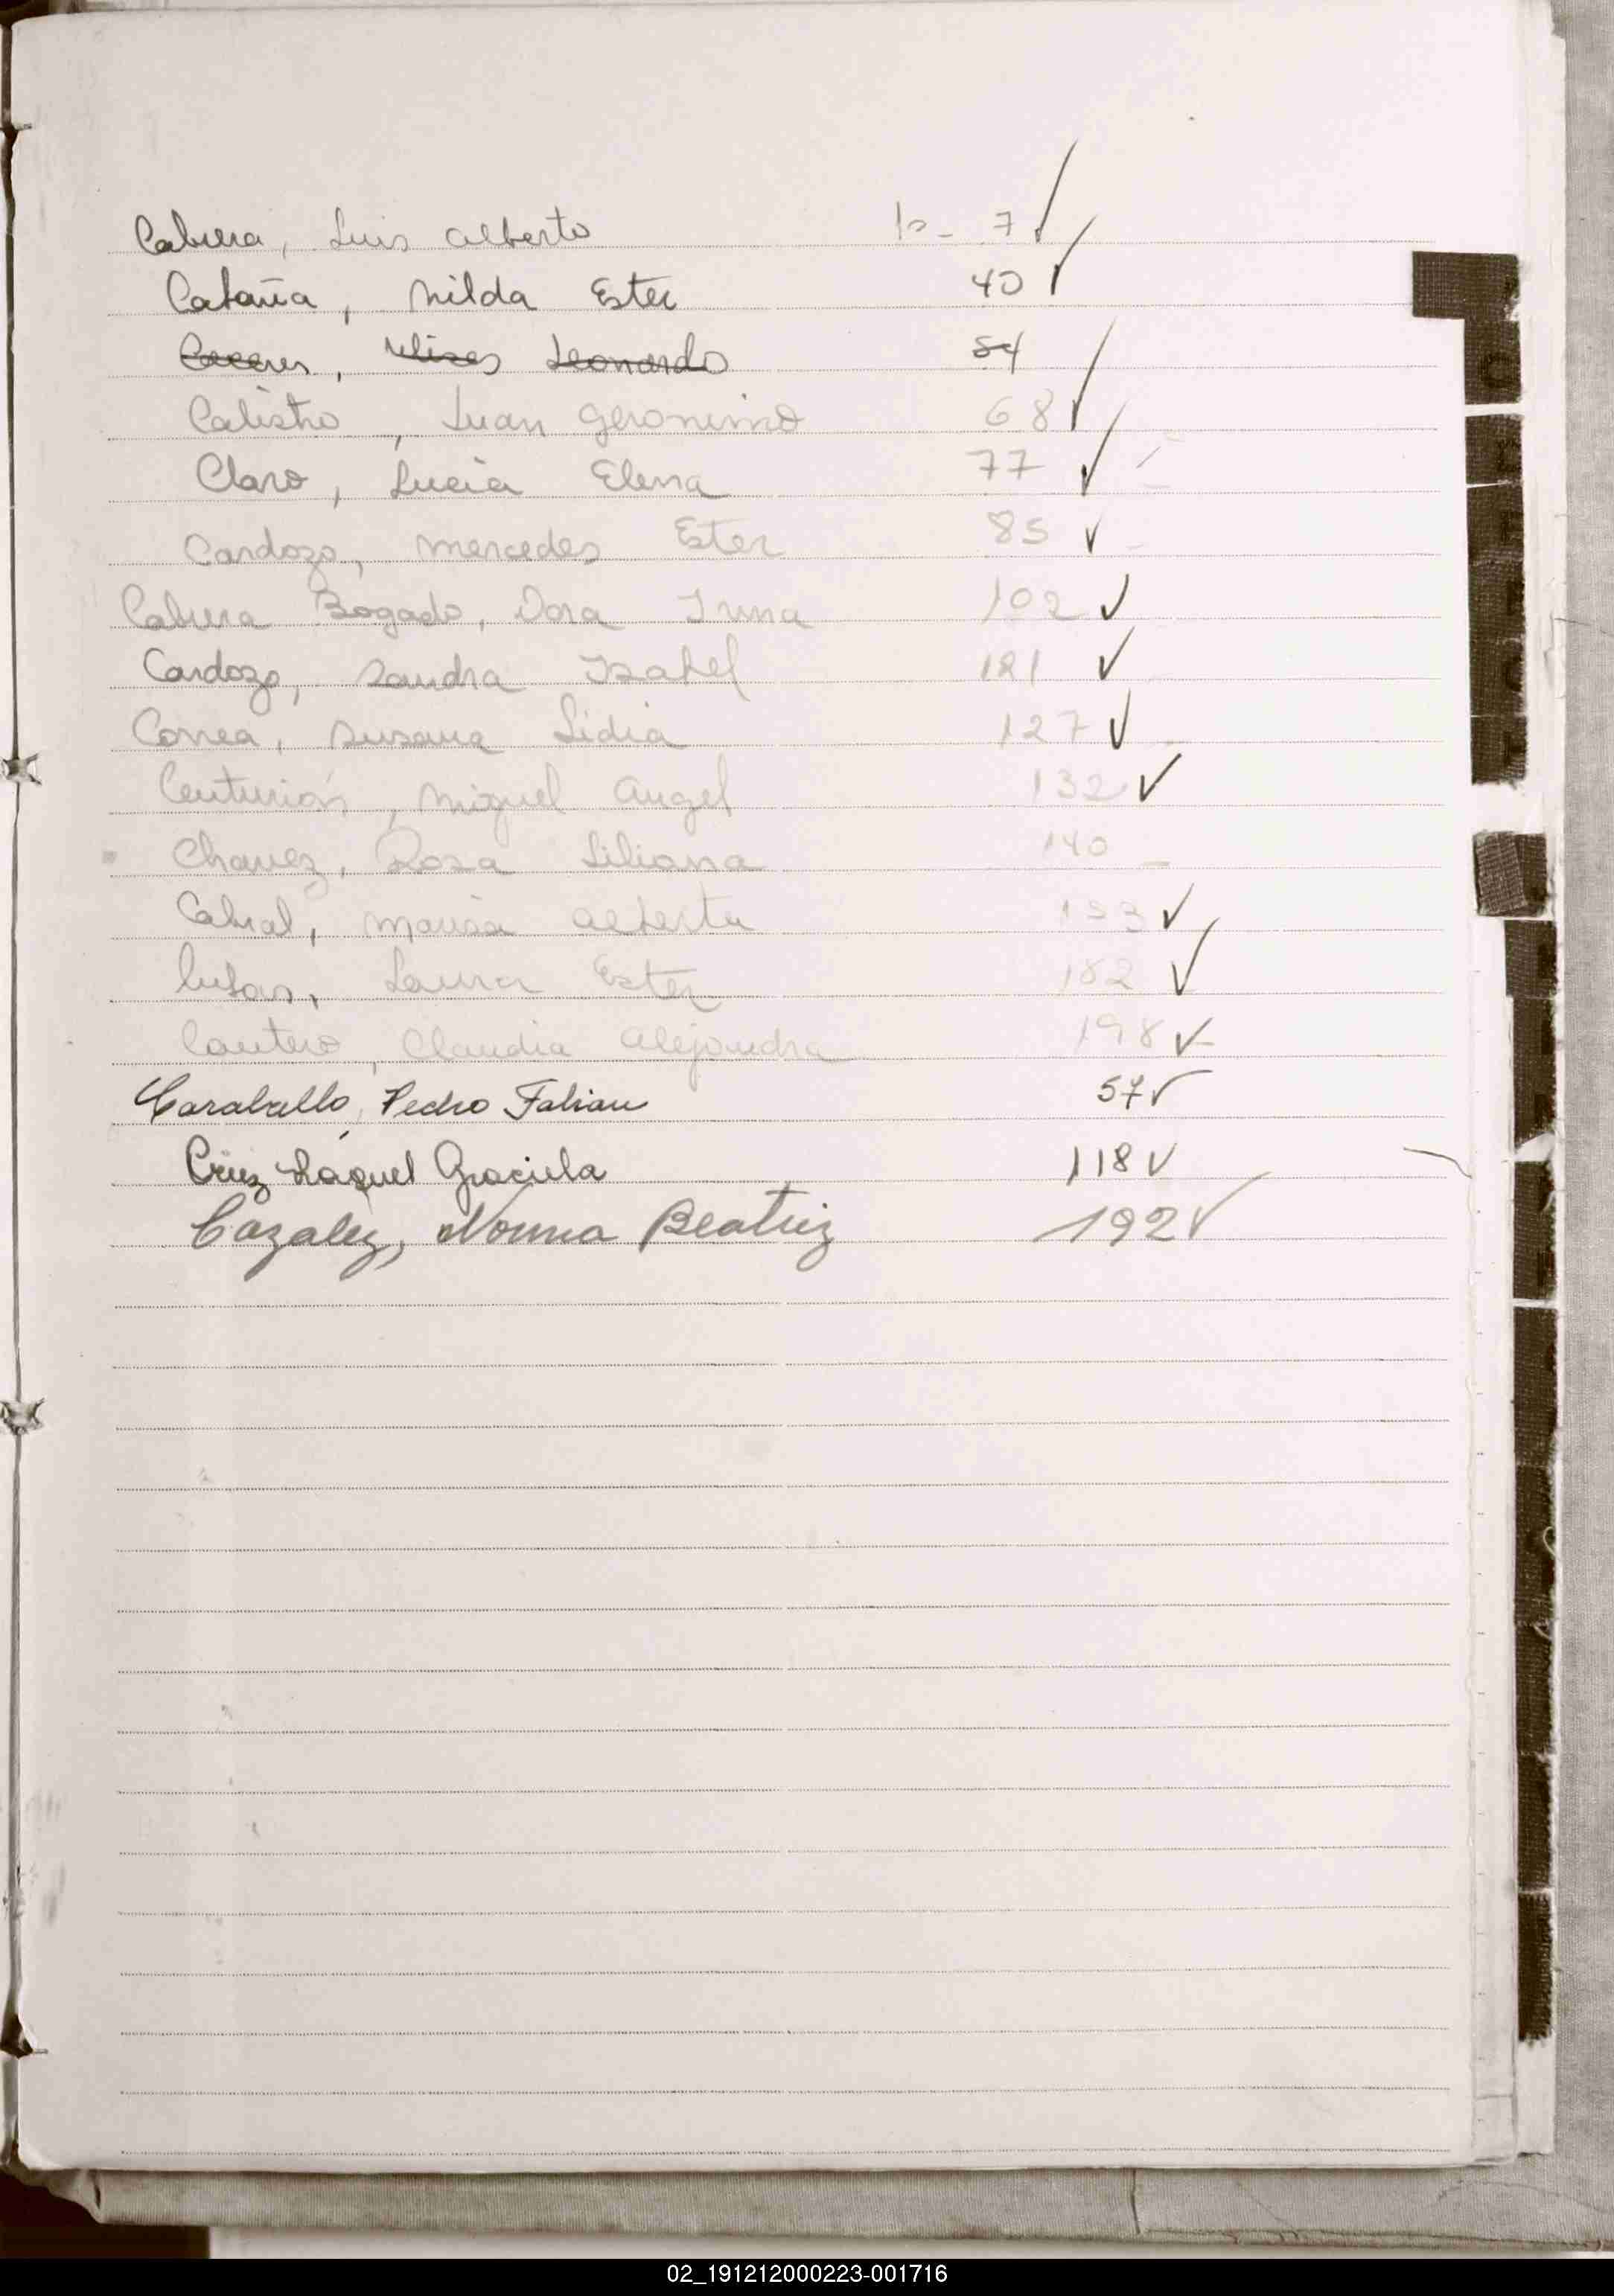 Cabrera, Luis Alberto 10- 7 ✓
Cabaña, Nilda Ester 40 ✓
Caceres, Ulises Leonardo 54
Calistro, Juan Geronimo 68 ✓
Claro, Lucia Elena 77 ✓
Cardozo, Mercedes Ester 85 ✓
Cabrera Bogado, Dora Irma 102 ✓
Cardozo, Sandra Isabel 121 ✓
Correa, Susana Lidia 127 ✓
Centurión, Miguel Angel 132 ✓
Chavez, Rosa Liliana 140
Cabral, Maria Alberta 153 ✓
Laura Ester 182 ✓
Cantero, Claudia Alejandra 198 ✓
Caraballo, Pedro Fabian 57 ✓
Cruz Raquel Graciela 118 ✓
Cazalez, Norma Beatriz 192 ✓
02_191212000223-001716